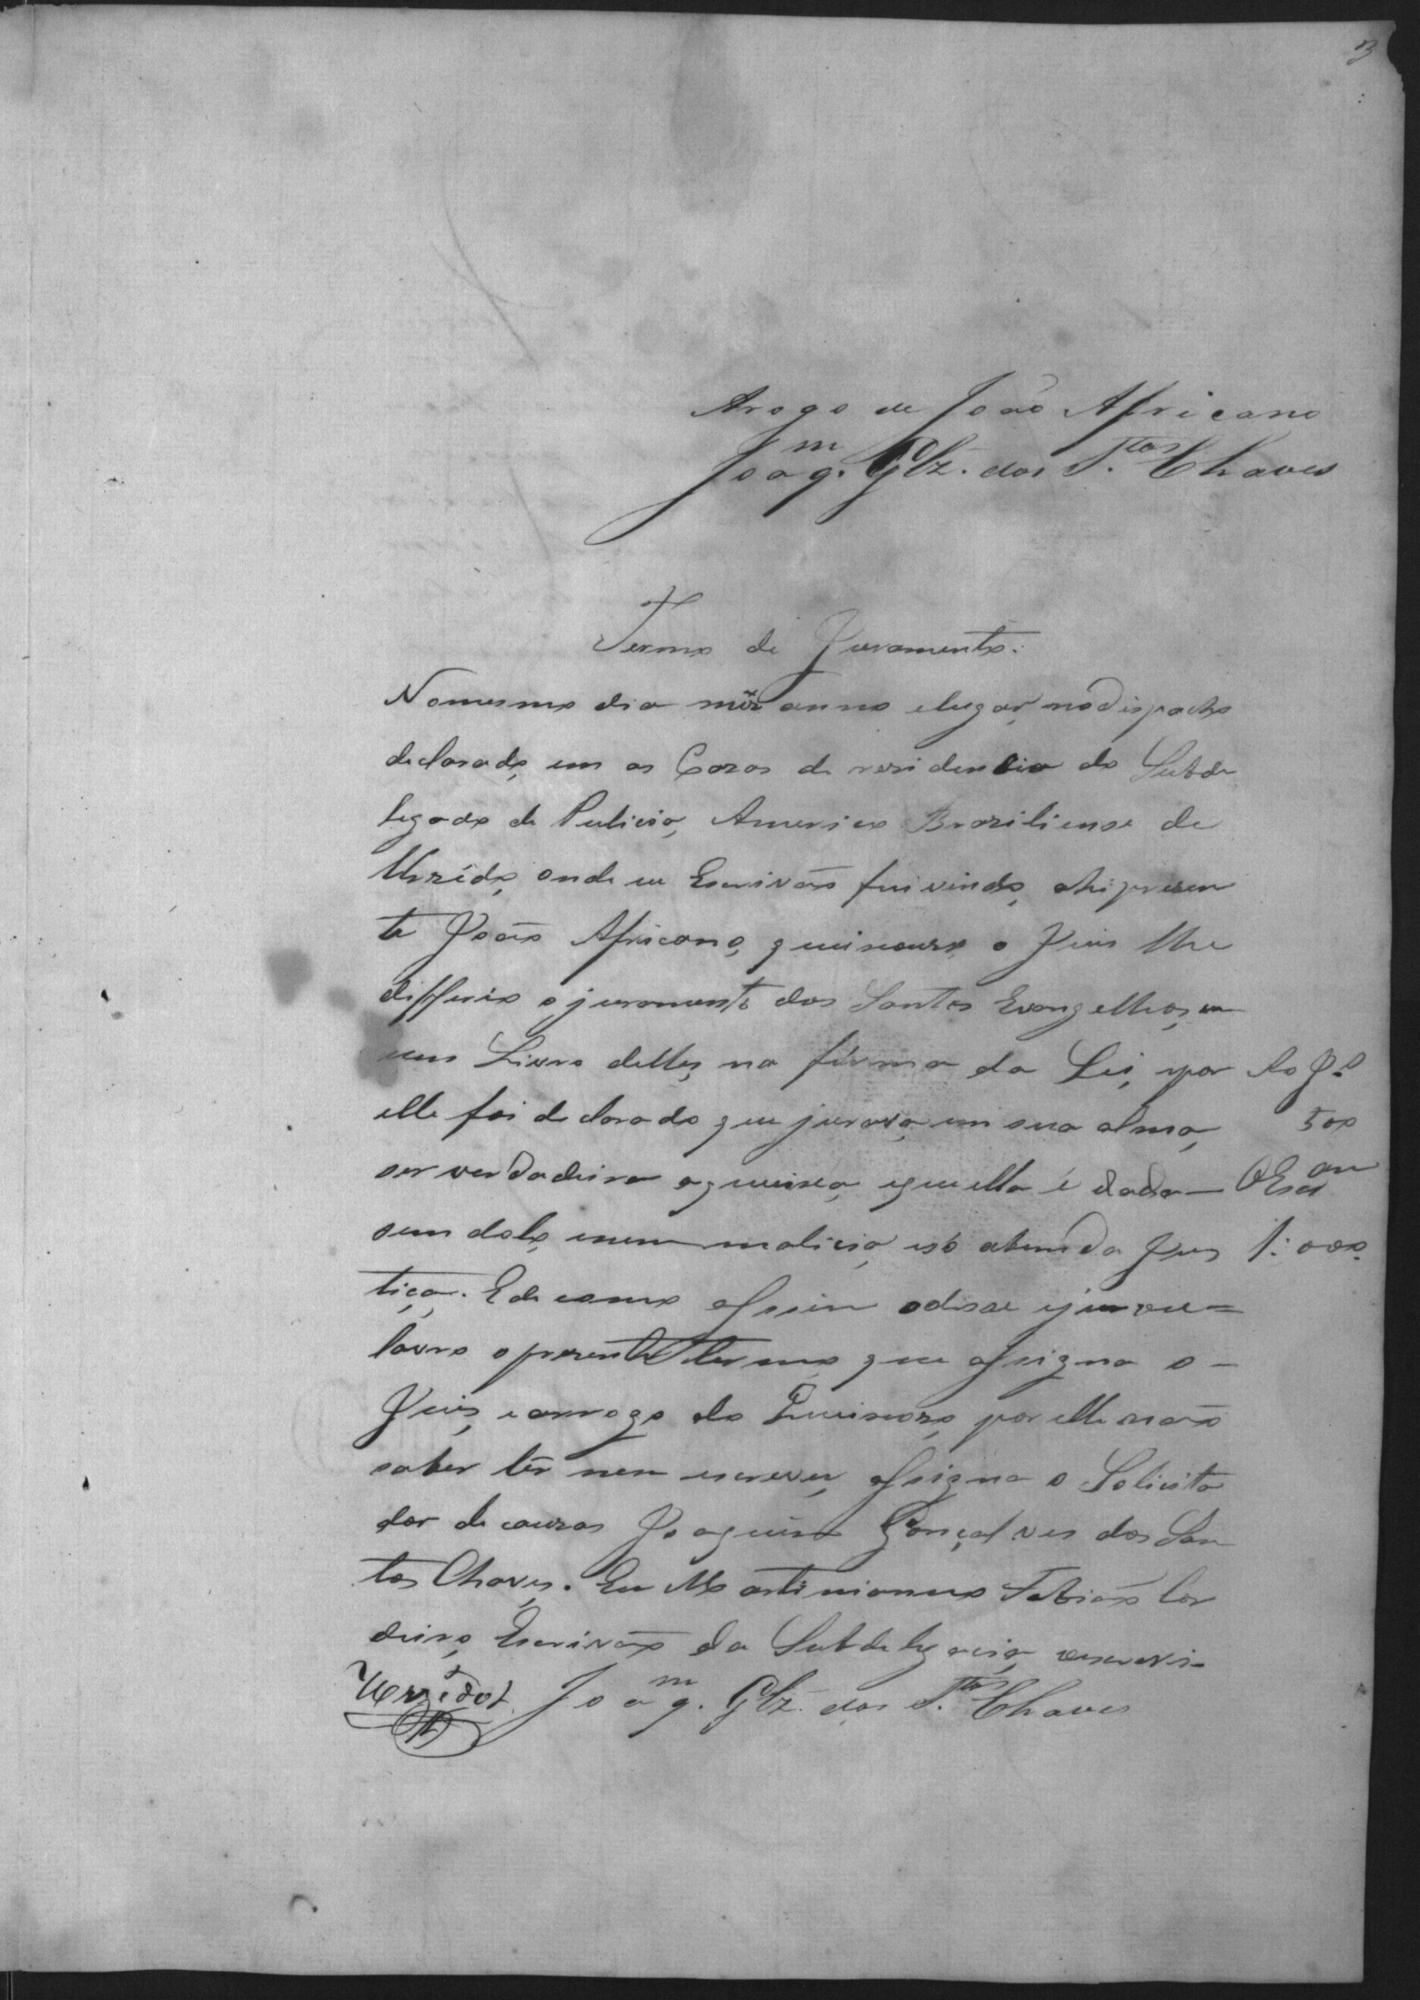 3
Arogo de João Africano
Joaqm. Glz. dos Stos. Chaves
Termo de Juramento.
Nomesmo dia mêz anno elugar, nodispacho
declarado, em as Cazas de residencia do Subde
legado de Pulicia, Americo Braziliense de
onde eu Escrivão fui vindo, ahi presen
te João Africano, queixouzo, o Juis lhe
differio o juramento dos Santos Evangelhos, em
um Livro delles, na fórma da Lei, epor
elle foi declarado que jurava, em sua alma,
ser verdadeira aqueixa, equella é dada—
sem dolo, enem malicia, esó abem da Jus
tiça. E de como assim odisse ejurou=
lavro opresente termo, que assigna o—
Juis, earrogo do Queixozo, por elle não
saber lêr nem escrever, assigna o Solicita
dor de cauzas Joaquim Gonçalves dos San
tos Chaves. Eu Martinianno Fabião Cor
deiro, Escrivão da Subdelegacia, oescrevi—
Joaqm. Glz. dos Stos. Chaves
Ao J.o
500
OEscam
1:000.